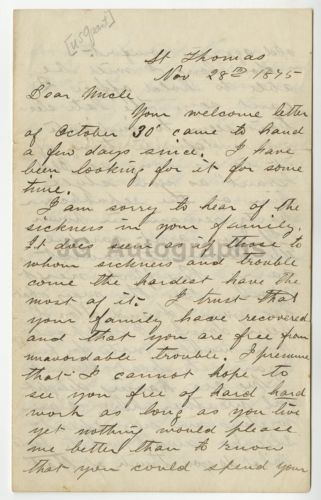 [US Grant]
St Thomas
Nov 28th 1875
Dear Uncle
Your welcome letter
of October 30' came to hand
a few days since. I have
been looking for it for some
time.
I am sorry to hear of the
sickness in your family.
It does seem as if those to
whom sickness and trouble
come the hardest have the
most of it. I trust that
your family have recovered
and that you are free from
unavoidable trouble. I presume
that I cannot hope to
see you free of hard hard
work as long as you live
yet nothing would please
me better than to know
that you could spend your
JG Autographs